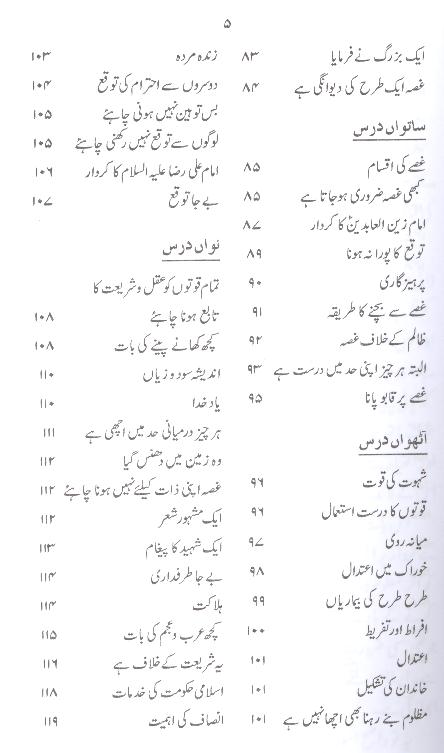 ۵
ایک بزرگ نے فرمایا ۸۳
غصہ ایک طرح کی دیوانگی ہے ۸۴
ساتواں درس
غصے کی اقسام ۸۵
کبھی غصہ ضروری ہوجاتا ہے ۸۵
امام زین العابدینؑ کا کردار ۸۷
توقع کا پورا نہ ہونا ۸۹
پرہیزگاری ۹۰
غصے سے بچنے کا طریقہ ۹۱
ظالم کے خلاف غصہ ۹۲
البتہ ہر چیز اپنی حد میں درست ہے ۹۳
غصے پر قابو پانا ۹۵
آٹھواں درس
شہوت کی قوت ۹۶
قوتوں کا درست استعمال ۹۶
میانہ روی ۹۷
خوراک میں اعتدال ۹۸
طرح طرح کی بیماریاں ۹۹
افراط اور تفریط ۱۰۰
اعتدال ۱۰۱
خاندان کی تشکیل ۱۰۱
مظلوم بنے رہنا بھی اچھا نہیں ہے ۱۰۱
زندہ مردہ ۱۰۳
دوسروں سے احترام کی توقع ۱۰۴
بس توہین نہیں ہونی چاہئے ۱۰۵
لوگوں سے توقع نہیں رکھنی چاہئے ۱۰۵
امام علی رضا علیہ السلام کا کردار ۱۰۶
بے جا توقع ۱۰۷
نواں درس
تمام قوتوں کو عقل و شریعت کا
تابع ہونا چاہئے ۱۰۸
کچھ کھانے پینے کی بات ۱۰۸
اندیشۂ سود و زیاں ۱۱۰
یاد خدا ۱۱۰
ہر چیز درمیانی حد میں اچھی ہے ۱۱۱
وہ زمین میں دھنس گیا ۱۱۲
غصہ اپنی ذات کیلئے نہیں ہونا چاہئے ۱۱۲
ایک مشہور شعر ۱۱۲
ایک شہید کا پیغام ۱۱۳
بے جا طرفداری ۱۱۴
ہلاکت ۱۱۴
کچھ عرب و عجم کی بات ۱۱۵
یہ شریعت کے خلاف ہے ۱۱۶
اسلامی حکومت کی خدمات ۱۱۸
انصاف کی اہمیت ۱۱۹